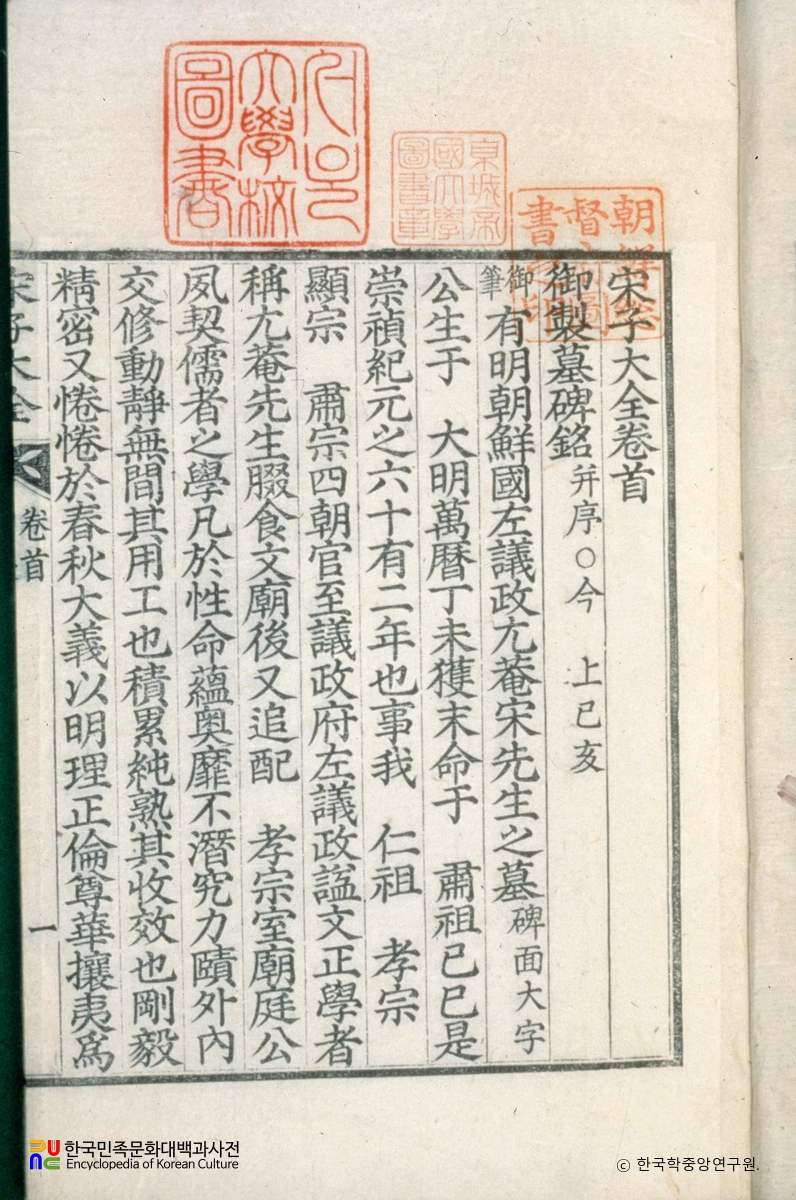 宋子大全卷首
御製墓碑銘 幷序○今 上己亥
御筆 有明朝鮮國左議政尤菴宋先生之墓 碑面大字
公生于 大明萬曆丁未獲末命于 肅祖己巳是
崇禎紀元之六十有二年也事我 仁祖 孝宗
顯宗 肅宗四朝官至議政府左議政諡文正學者
稱尤菴先生腏食文廟後又追配 孝宗室廟庭公
夙契儒者之學凡於性命蘊奧靡不潛究力賾外內
交修動靜無間其用工也積累純熟其收效也剛毅
精密又惓惓於春秋大義以明理正倫尊華攘夷爲
宋子大全 卷首 一
서울大學校圖書
京城帝國大學圖書章
朝鮮總督府圖書之印
한국민족문화대백과사전
Encyclopedia of Korean Culture
© 한국학중앙연구원.